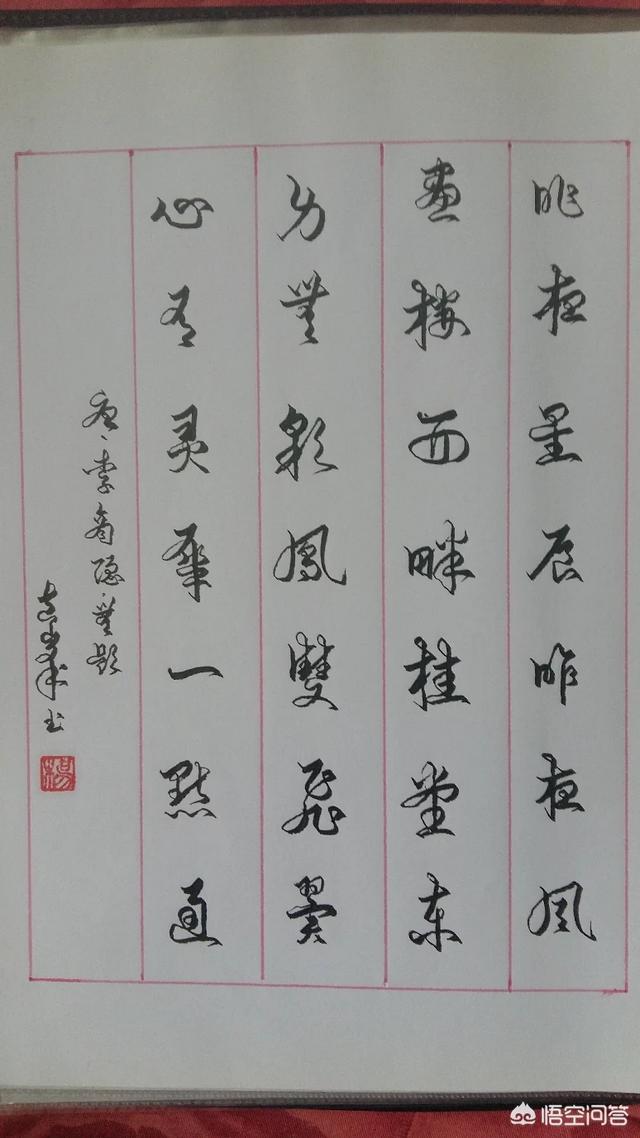 昨夜星辰昨夜風
畫楼西畔桂堂东
身無彩鳳雙飛翼
心有灵犀一點通
唐、李商隐、無題
书
楊
悟空问答